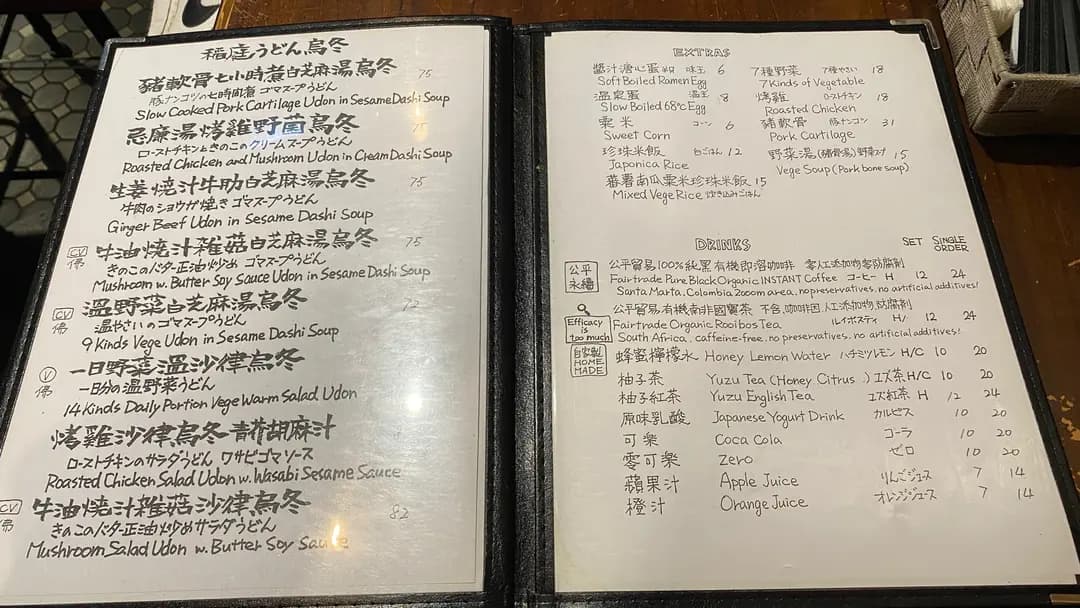 稻庭うどん烏冬
豬軟骨七小時煮白芝麻湯烏冬 75
豚ナンコツの七時間煮 ゴマスープうどん
Slow Cooked Pork Cartilage Udon in Sesame Dashi Soup
忌廉湯烤雞野菌烏冬 75
ローストチキンときのこのクリームスープうどん
Roasted Chicken and Mushroom Udon in Cream Dashi Soup
生姜燒汁牛肋白芝麻湯烏冬 75
牛肉のショウガ焼き ゴマスープうどん
Ginger Beef Udon in Sesame Dashi Soup
CV 佛 牛油燒汁雜菇白芝麻湯烏冬 75
きのこのバター正油炒め ゴマスープうどん
Mushroom w. Butter Soy Sauce Udon in Sesame Dashi Soup
CV 佛 溫野菜白芝麻湯烏冬 72
温やさいのゴマスープうどん
9 Kinds Vege Udon in Sesame Dashi Soup
V 佛 一日野菜溫沙律烏冬
一日分の温野菜うどん
14 Kinds Daily Portion Vege Warm Salad Udon
烤雞沙律烏冬 青芥胡麻汁
ローストチキンのサラダうどん ワサビゴマソース
Roasted Chicken Salad Udon w. Wasabi Sesame Sauce
CV 佛 牛油燒汁雜菇沙律烏冬 82
きのこのバター正油炒めサラダうどん
Mushroom Salad Udon w. Butter Soy Sauce
EXTRAS
醬汁溏心蛋 味玉 6
Soft Boiled Ramen Egg
溫泉蛋 温玉 8
Slow Boiled 68°C Egg
粟米 コーン 6
Sweet Corn
珍珠米飯 白ごはん 12
Japonica Rice
蕃薯南瓜粟米珍珠米飯 15
Mixed Vege Rice 炊き込みごはん
7種野菜 7種やさい 18
7 Kinds of Vegetable
烤雞 ローストチキン 18
Roasted Chicken
豬軟骨 豚ナンコツ 31
Pork Cartilage
野菜湯(豬骨湯) 野菜スープ 15
Vege Soup (Pork bone soup)
DRINKS SET SINGLE ORDER
公平永續 公平貿易100%純黑有機即溶咖啡 零人工添加物零防腐劑
Fairtrade Pure Black Organic INSTANT Coffee コーヒー H 12 24
Santa Marta, Colombia 2000m area, no preservatives, no artificial additives!
公平貿易有機南非國寶茶 不含咖啡因,人工添加物,防腐劑
Efficacy is too much Fairtrade Organic Rooibos Tea ルイボスティ H/ 12 24
South Africa, caffeine-free, no preservatives, no artificial additives!
自家製 HOME MADE 蜂蜜檸檬水 Honey Lemon Water ハチミツレモン H/C 10 20
柚子茶 Yuzu Tea (Honey Citrus) ユズ茶 H/C 10 20
柚子紅茶 Yuzu English Tea ユズ紅茶 H 12 24
原味乳酸 Japanese Yogurt Drink カルピス 10 20
可樂 Coca Cola コーラ 10 20
零可樂 Zero ゼロ 10 20
蘋果汁 Apple Juice りんごジュース 7 14
橙汁 Orange Juice オレンジジュース 7 14